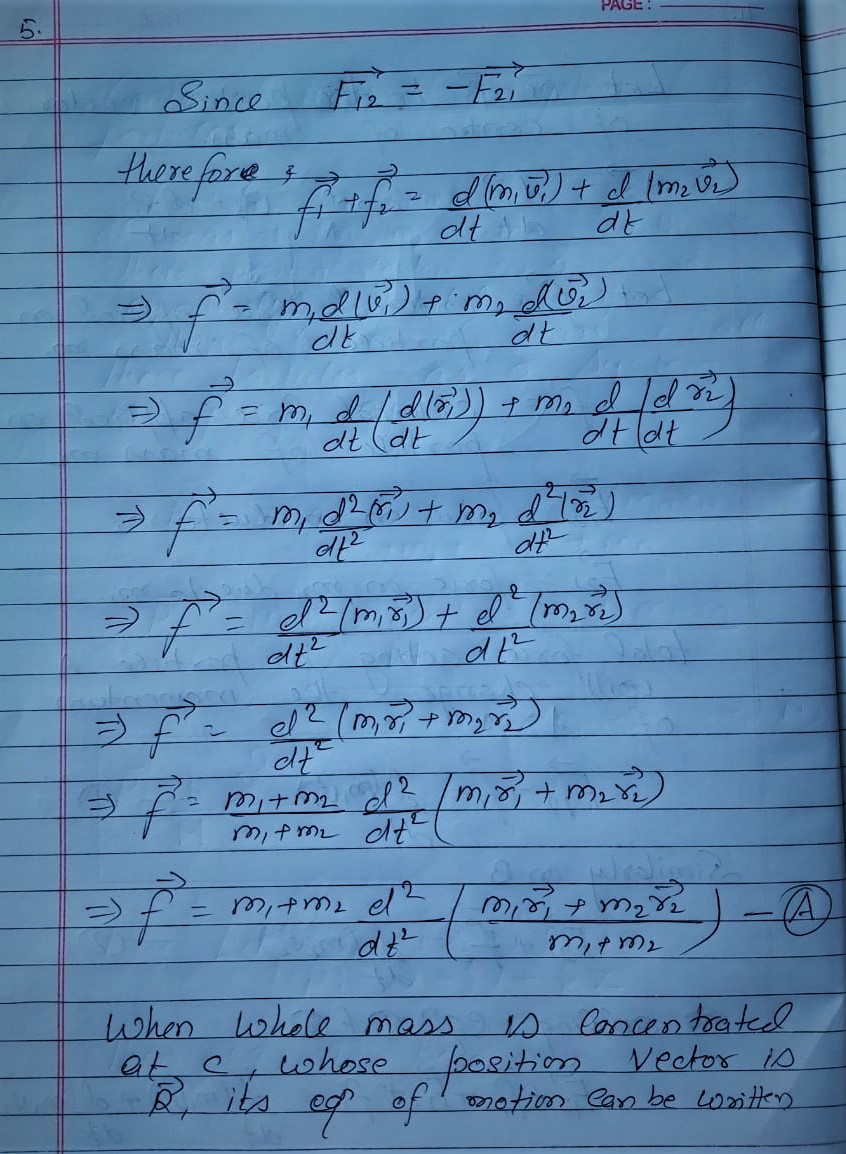 PAGE:
5.
Since, F⃗₁₂ = -F⃗₂₁
therefore, f⃗₁ + f⃗₂ = d(m₁v⃗₁)/dt + d/dt (m₂v⃗₂)
⇒ f⃗ = m₁ d(v⃗₁)/dt + m₂ d(v⃗₂)/dt
⇒ f⃗ = m₁ d/dt (d(r⃗₁)/dt) + m₂ d/dt (d r⃗₂/dt)
⇒ f⃗ = m₁ d²(r⃗₁)/dt² + m₂ d²(r⃗₂)/dt²
⇒ f⃗ = d²/dt² (m₁r⃗₁) + d²/dt² (m₂r⃗₂)
⇒ f⃗ = d²/dt² (m₁r⃗₁ + m₂r⃗₂)
⇒ f⃗ = (m₁+m₂)/(m₁+m₂) d²/dt² (m₁r⃗₁ + m₂r⃗₂)
⇒ f⃗ = m₁+m₂ d²/dt² ((m₁r⃗₁ + m₂r⃗₂)/(m₁+m₂)) — Ⓐ
When whole mass is concentrated
at C, whose position vector is
R⃗, its eqⁿ of motion can be written